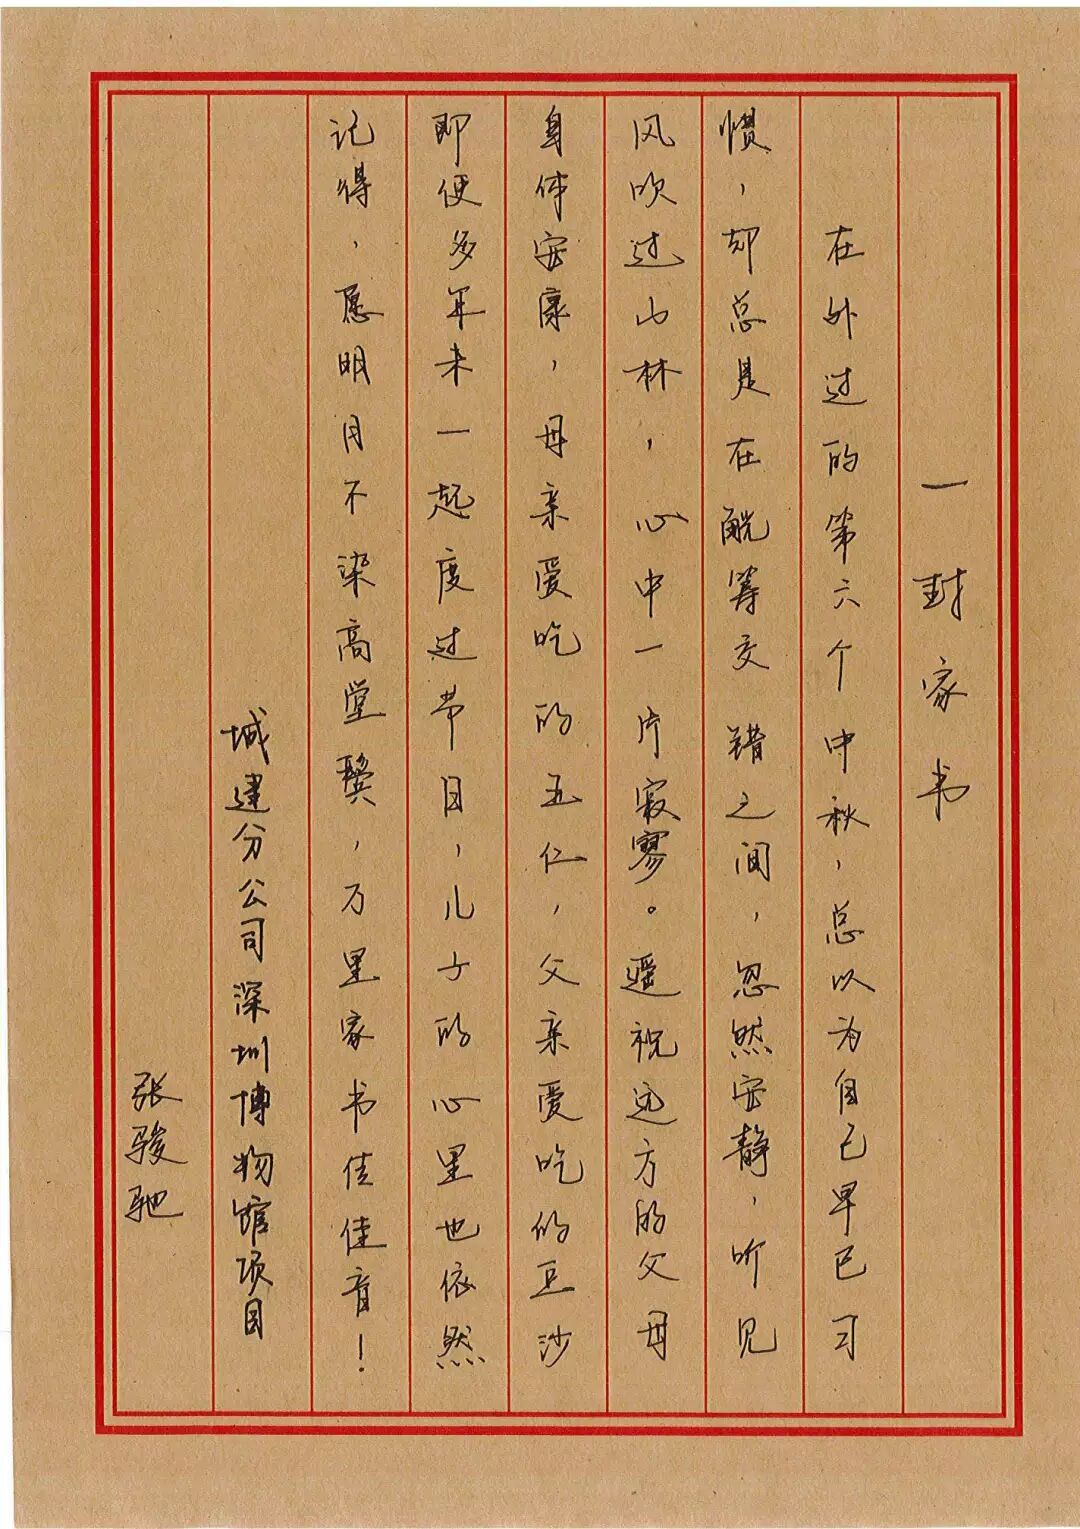 一封家书
在外过的第六个中秋，总以为自己早已习
惯，却总是在觥筹交错之间，忽然安静，听见
风吹过山林，心中一片寂寥。遥祝远方的父母
身体安康，母亲爱吃的五仁，父亲爱吃的豆沙
即便多年未一起度过节日，儿子的心里也依然
记得，愿明月不染高堂鬓，万里家书佳佳音！
城建分公司深圳博物馆项目
张骏驰